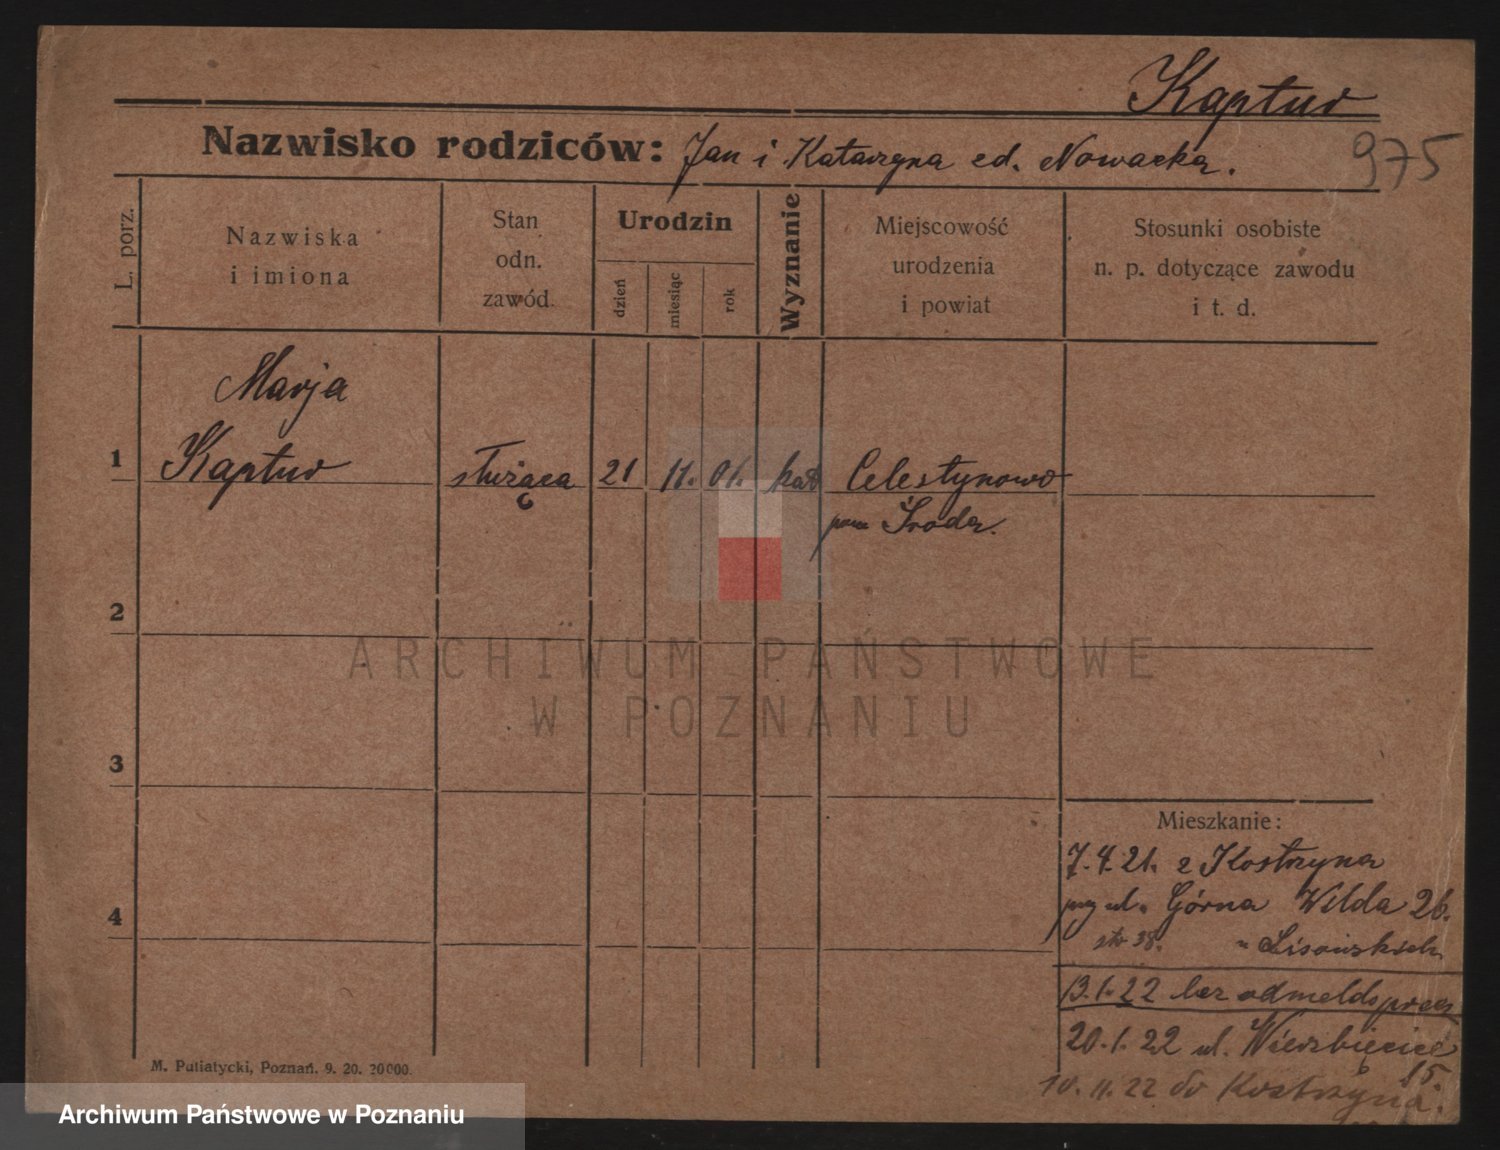 Kaptur
Nazwisko rodziców: Jan i Katarzyna cd. Nowacka.
975
L. porz.
Nazwiska
i imiona
Stan
odn.
zawód.
Urodzin
dzień
miesiąc
rok
Wyznanie
Miejscowość
urodzenia
i powiat
Stosunki osobiste
n. p. dotyczące zawodu
i t. d.
1
Marja
Kaptur
służąca
21
11.
01.
kat
Celestynowo
pow Środa.
2
3
4
Mieszkanie:
7.4.21. z Kostrzyna
przy ul. Górna Wilda 26.
str 38. " Lisowskich
13.1.22 bez odmeld.
20.1.22 ul. Wierzbięcice
15.
10.11.22 do Kostrzyna.
M. Putiatycki, Poznań. 9. 20. 20000.
ARCHIWUM PAŃSTWOWE
W POZNANIU
Archiwum Państwowe w Poznaniu